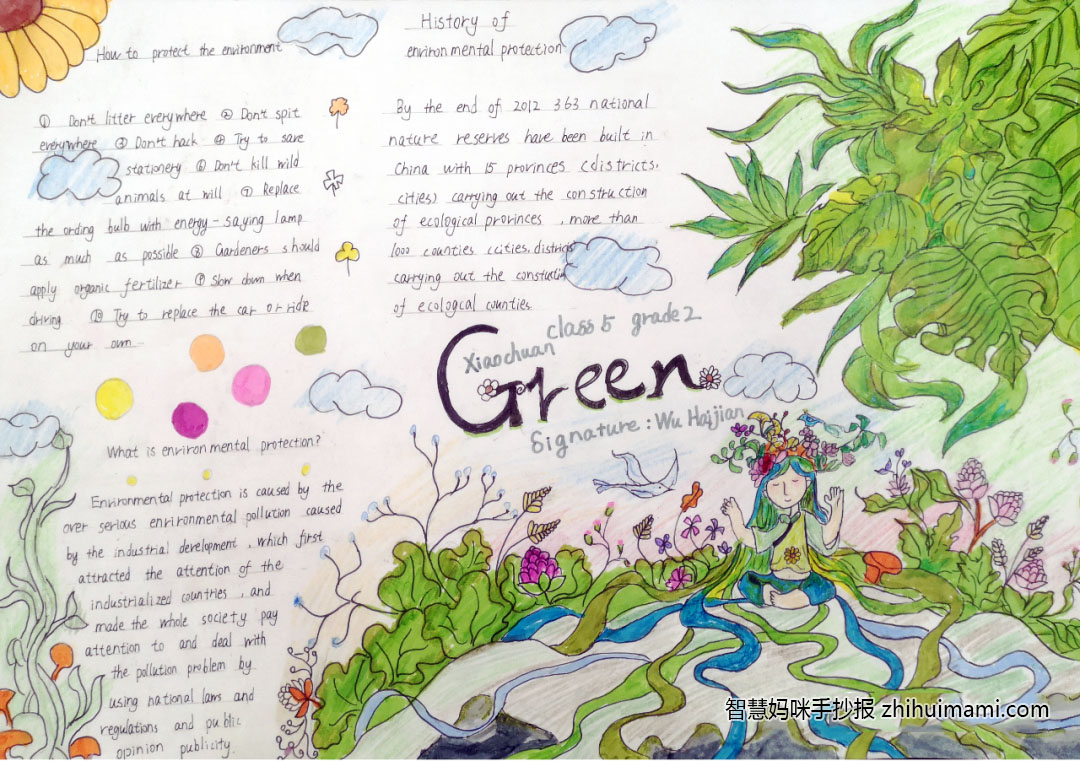 How to protect the environment
① Don't litter everywhere ② Don't spit
everywhere ③ Don't hack ④ Try to save
stationery ⑥ Don't kill wild
animals at will ⑦ Replace
the ording bulb with energy-saying lamp
as much as possible ⑧ Gardeners should
apply organic fertilizer ⑨ Slow down when
driving ⑩ Try to replace the car or ride
on your own
What is environmental protection?
Environmental protection is caused by the
over serious environmental pollution caused
by the industrial development, which first
attracted the attention of the
industrialized countries, and
made the whole society pay
attention to and deal with
the pollution problem by
using national laws and
regulations and public
opinion publicity.
History of
environmental protection
By the end of 2012 363 national
nature reserves have been built in
China with 15 provinces (districts,
cities) carrying out the construction
of ecological provinces, more than
1000 counties (cities, districts
carrying out the
of ecologcal counties
Xiaochuan class 5 grade 2
Green
Signature: Wu Haijian
智慧妈咪手抄报 zhihuimami.com